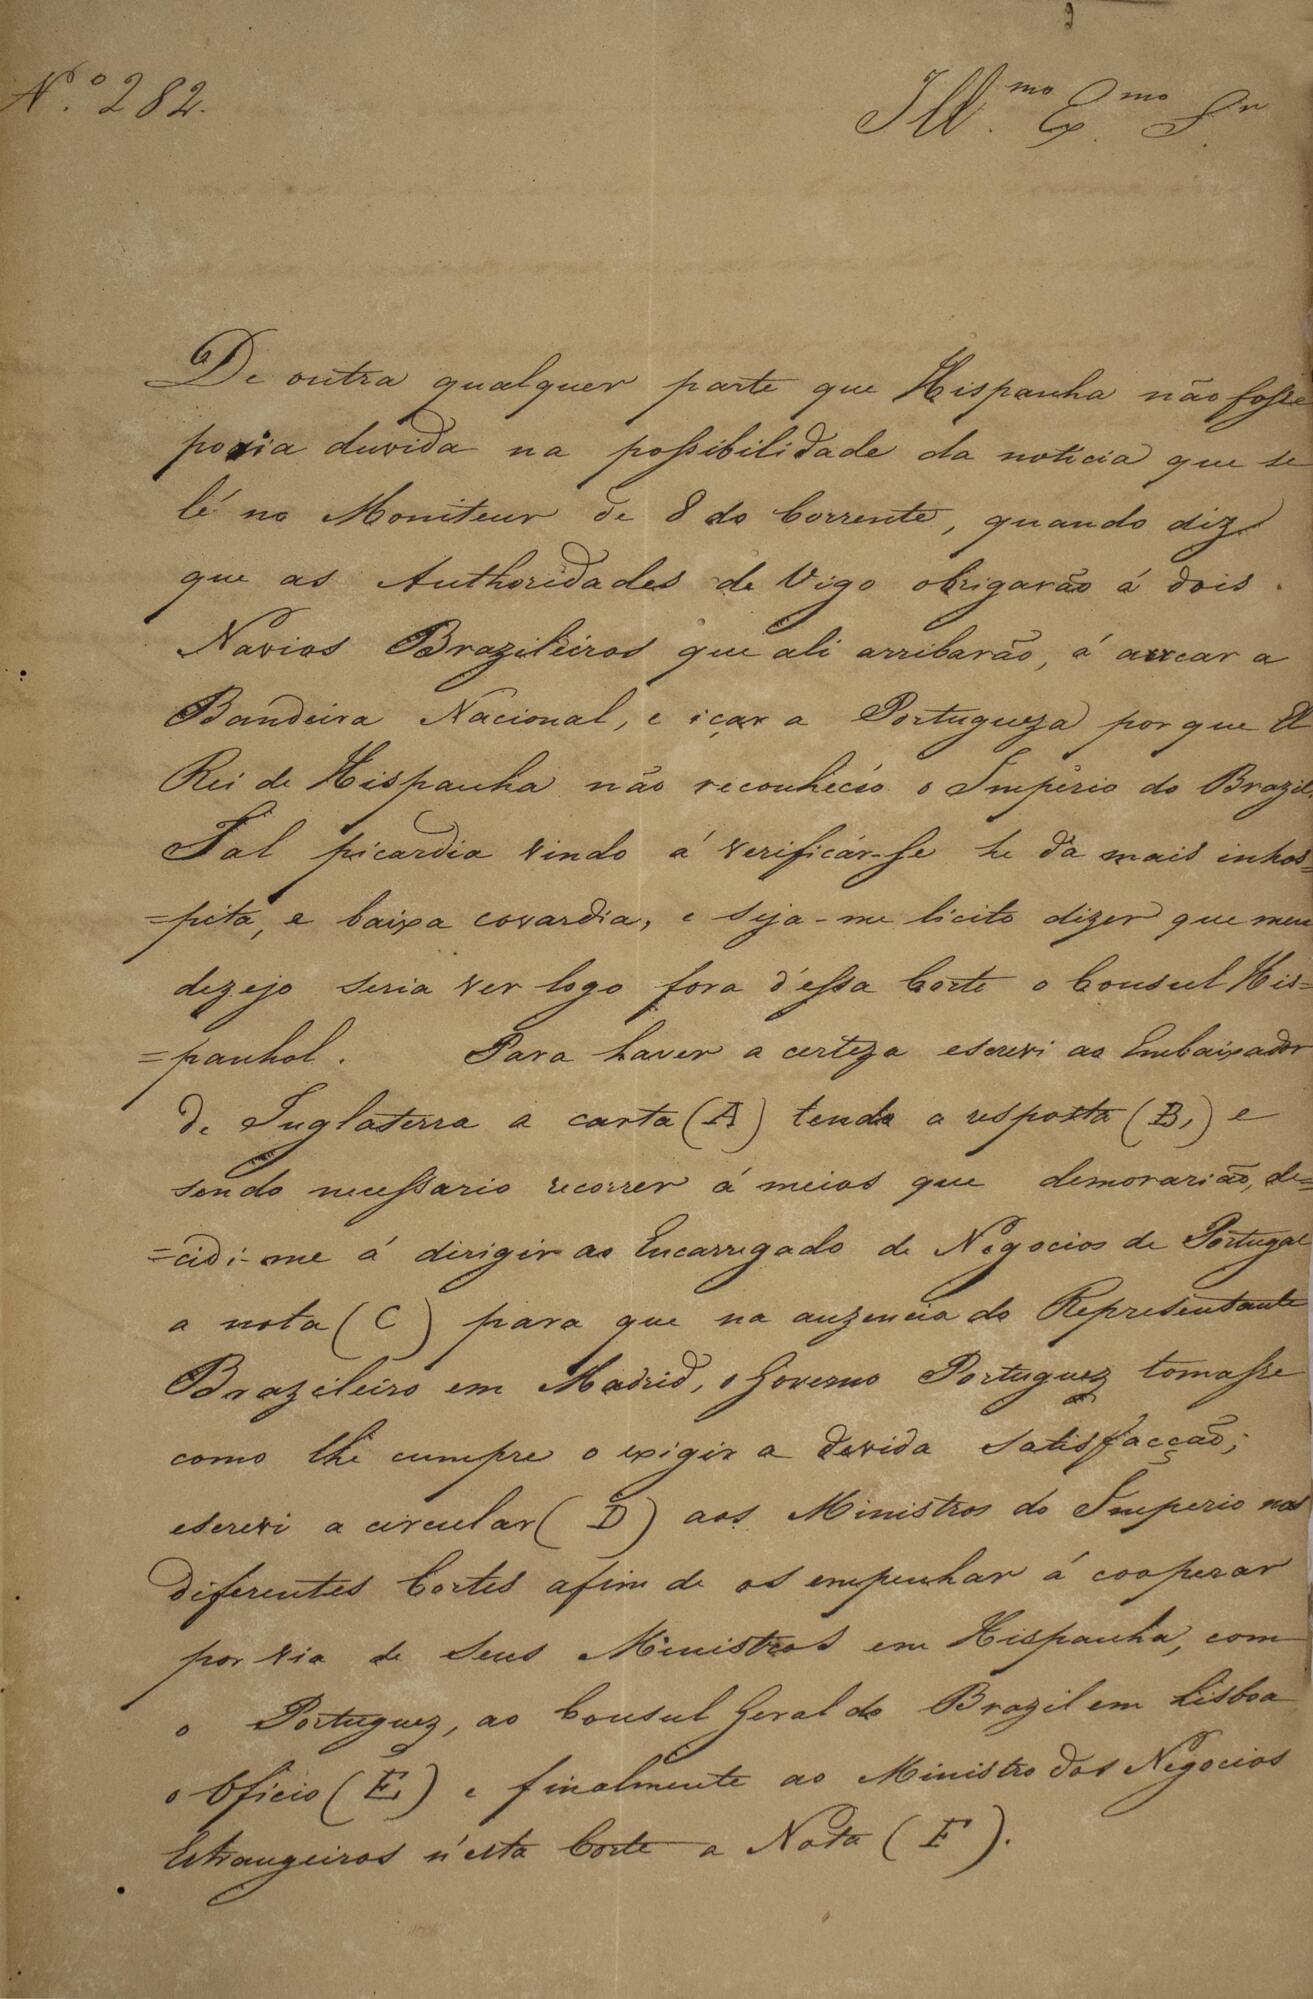 N.º 282.
Ill.mo Ex.mo Sr.
De outra qualquer parte que Hispanha não fosse
poria duvida na possibilidade da noticia que se
lê no Moniteur de 8 do Corrente, quando diz
que as Authoridades de Vigo obrigarão á dois
Navios Brazileiros que ali arribarão, á arrear a
Bandeira Nacional, e içar a Portugueza porque El
Rei de Hispanha não reconhecêo o Imperio do Brazil.
Tal picardia vindo á verificár-se he dà mais inhos=
=pita, e baixa covardia, e seja-me licito dizer que meu
dezejo seria ver logo fora d'essa Corte o Consul His=
=panhol. Para haver a certeza escrevi ao Embaixador
de Inglaterra a carta (A) tendo a resposta (B,) e
sendo necessario recorrer á meios que demorarião, de=
=cidi-me á dirigir ao Encarregado de Negocios de Portugal
a nota (C) para que na auzencia do Representante
Brazileiro em Madrid, o Governo Portuguez tomasse
como lhe cumpre o exigir a devida satisfacção;
escrevi a circular (D) aos Ministros do Imperio nas
diferentes Cortes afim de os empenhar á cooperar
por via de seus Ministros em Hispanha, com
o Portuguez, ao Consul Geral do Brazil em Lisboa
o Oficio (E) e finalmente ao Ministro dos Negocios
Estrangeiros n'esta Corte a Nota (F).